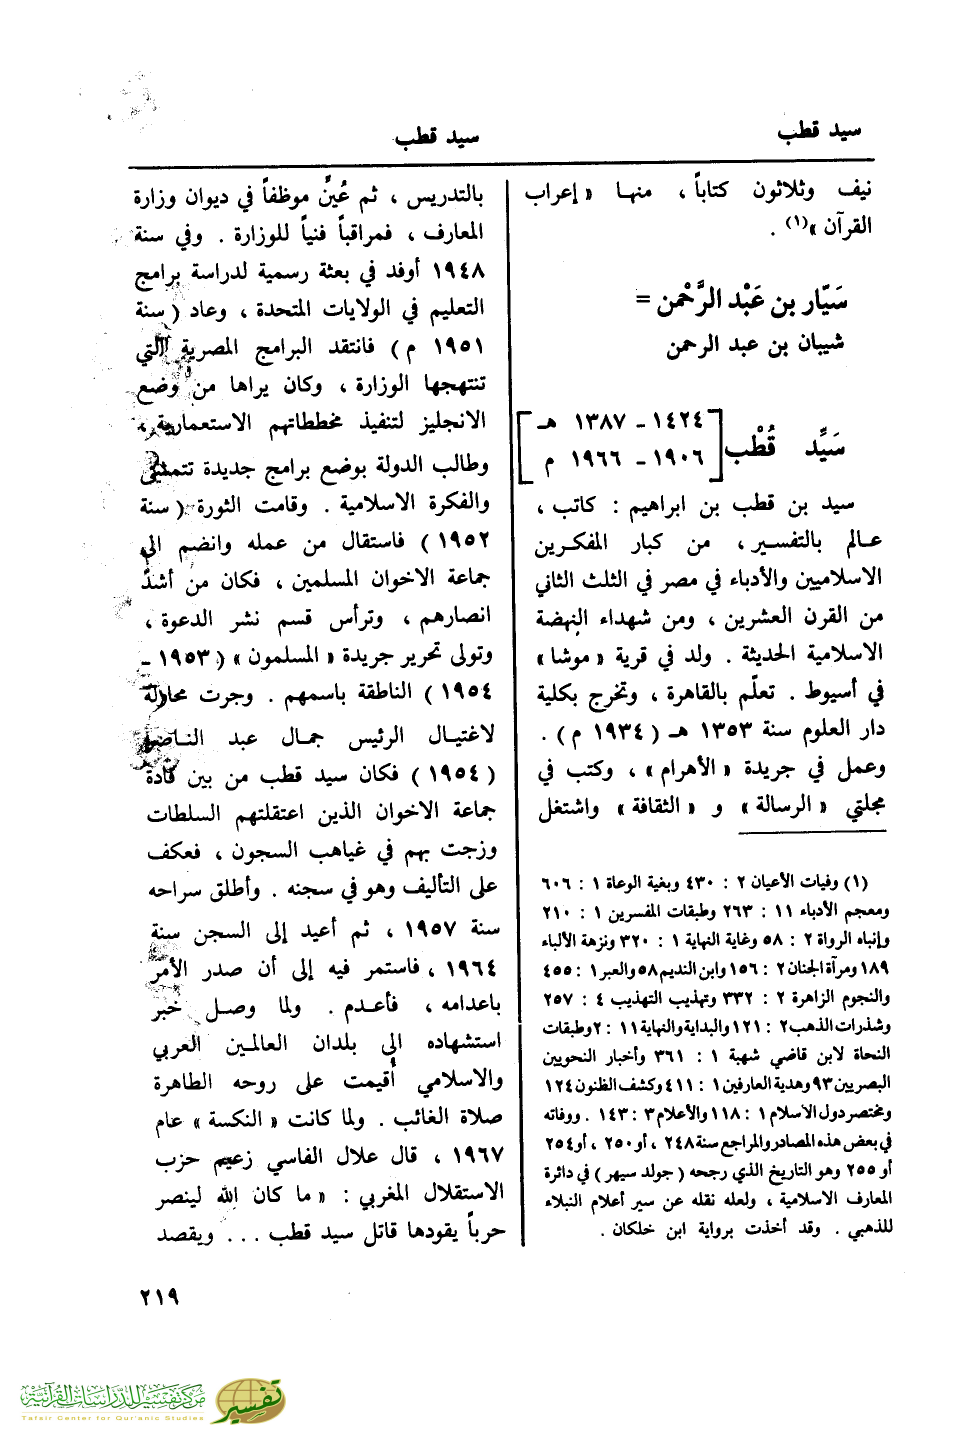 سيد قطب
سيد قطب
نيف وثلاثون كتاباً ، منها « إعراب
القرآن »(١) .
سَيّار بن عَبْد الرَّحْمن =
شيبان بن عبد الرحمن
سَيِّد قُطْب
[ ١٤٢٤ - ١٣٨٧ هـ
١٩٠٦ - ١٩٦٦ م ]
سيد بن قطب بن ابراهيم : كاتب ،
عالم بالتفسير ، من كبار المفكرين
الاسلاميين والأدباء في مصر في الثلث الثاني
من القرن العشرين ، ومن شهداء النهضة
الاسلامية الحديثة . ولد في قرية « موشا »
في أسيوط . تعلّم بالقاهرة ، وتخرج بكلية
دار العلوم سنة ١٣٥٣ هـ ( ١٩٣٤ م ) .
وعمل في جريدة « الأهرام » ، وكتب في
مجلتي « الرسالة » و « الثقافة » واشتغل
(١) وفيات الأعيان ٢ : ٤٣٠ وبغية الوعاة ١ : ٦٠٦
ومعجم الأدباء ١١ : ٢٦٣ وطبقات المفسرين ١ : ٢١٠
وإنباه الرواة ٢ : ٥٨ وغاية النهاية ١ : ٣٢٠ ونزهة الألباء
١٨٩ ومرآة الجنان ٢ : ١٥٦ وابن النديم ٥٨ والعبر ١ : ٤٥٥
والنجوم الزاهرة ٢ : ٣٣٢ وتهذيب التهذيب ٤ : ٢٥٧
وشذرات الذهب ٢ : ١٢١ والبداية والنهاية ١١ : ٢ وطبقات
النحاة لابن قاضي شهبة ١ : ٣٦١ وأخبار النحويين
البصريين ٩٣ وهدية العارفين ١ : ٤١١ وكشف الظنون ١٢٤
ومختصر دول الاسلام ١ : ١١٨ والأعلام ٣ : ١٤٣ . ووفاته
في بعض هذه المصادر والمراجع سنة ٢٤٨ ، أو ٢٥٠ ، أو ٢٥٤
أو ٢٥٥ وهو التاريخ الذي رجحه ( جولد سيهر ) في دائرة
المعارف الاسلامية ، ولعله نقله عن سير أعلام النبلاء
للذهبي . وقد أخذت برواية ابن خلكان .
بالتدريس ، ثم عُيِّن موظفاً في ديوان وزارة
المعارف ، فمراقباً فنياً للوزارة . وفي سنة
١٩٤٨ أوفد في بعثة رسمية لدراسة برامج
التعليم في الولايات المتحدة ، وعاد ( سنة
١٩٥١ م ) فانتقد البرامج المصرية التي
تنتهجها الوزارة ، وكان يراها من وضع
الانجليز لتنفيذ مخططاتهم الاستعمارية ،
وطالب الدولة بوضع برامج جديدة تتمشى
والفكرة الاسلامية . وقامت الثورة ( سنة
١٩٥٢ ) فاستقال من عمله وانضم الى
جماعة الاخوان المسلمين ، فكان من أشدّ
انصارهم ، وترأس قسم نشر الدعوة ،
وتولى تحرير جريدة « المسلمون » ( ١٩٥٣ -
١٩٥٤ ) الناطقة باسمهم . وجرت محاولة
لاغتيال الرئيس جمال عبد الناصر
( ١٩٥٤ ) فكان سيد قطب من بين قادة
جماعة الاخوان الذين اعتقلتهم السلطات
وزجت بهم في غياهب السجون ، فعكف
على التأليف وهو في سجنه . وأطلق سراحه
سنة ١٩٥٧ ، ثم أعيد إلى السجن سنة
١٩٦٤ ، فاستمر فيه إلى أن صدر الأمر
باعدامه ، فأعدم . ولما وصل خبر
استشهاده الى بلدان العالمين العربي
والاسلامي أقيمت على روحه الطاهرة
صلاة الغائب . ولما كانت « النكسة » عام
١٩٦٧ ، قال علال الفاسي زعيم حزب
الاستقلال المغربي : « ما كان الله لينصر
حرباً يقودها قاتل سيد قطب . . . ويقصد
٢١٩
مركز تفسير للدراسات القرآنية
Tafsir Center for Qur'anic Studies
تفسير